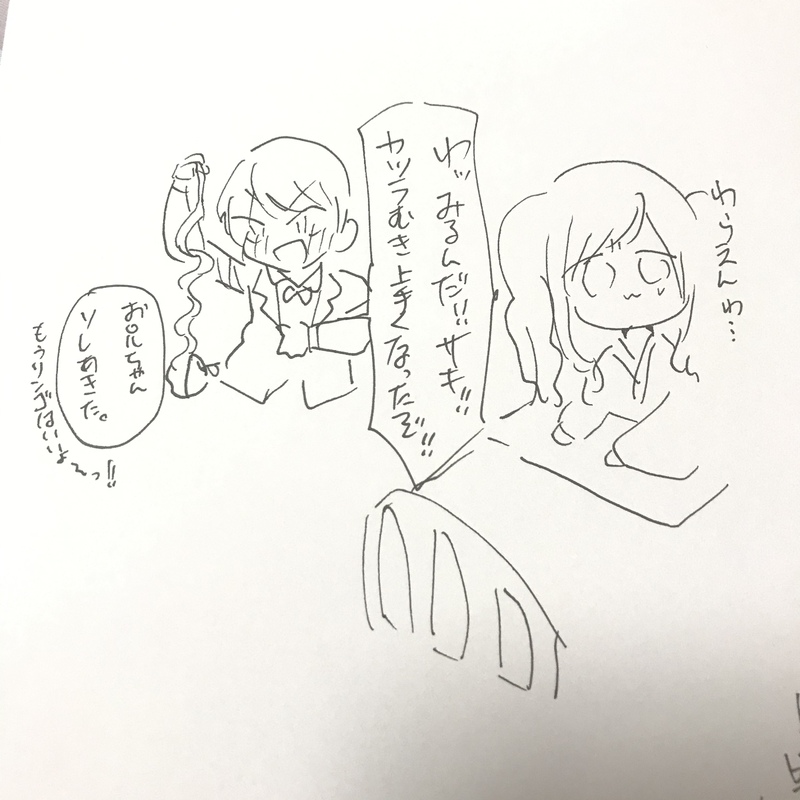 わらえんわ…
わッみるんだ!!サキ!!
カツラむき上手くなったぞ!!
ちゃん
あきた。
もうリンゴはいいよ